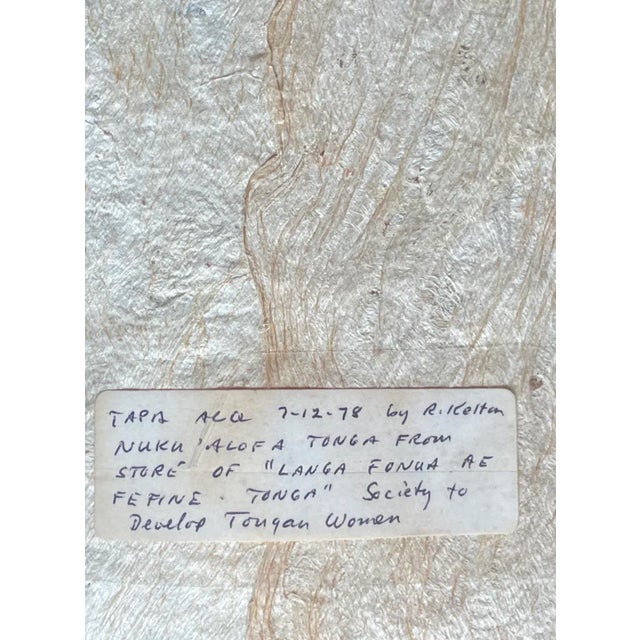 TAPA ACQ 7-12-78 by R. Kelton
NUKU'ALOFA TONGA FROM
STORE OF "LANGA FONUA AE
FEFINE . TONGA" Society to
Develop Tongan Women